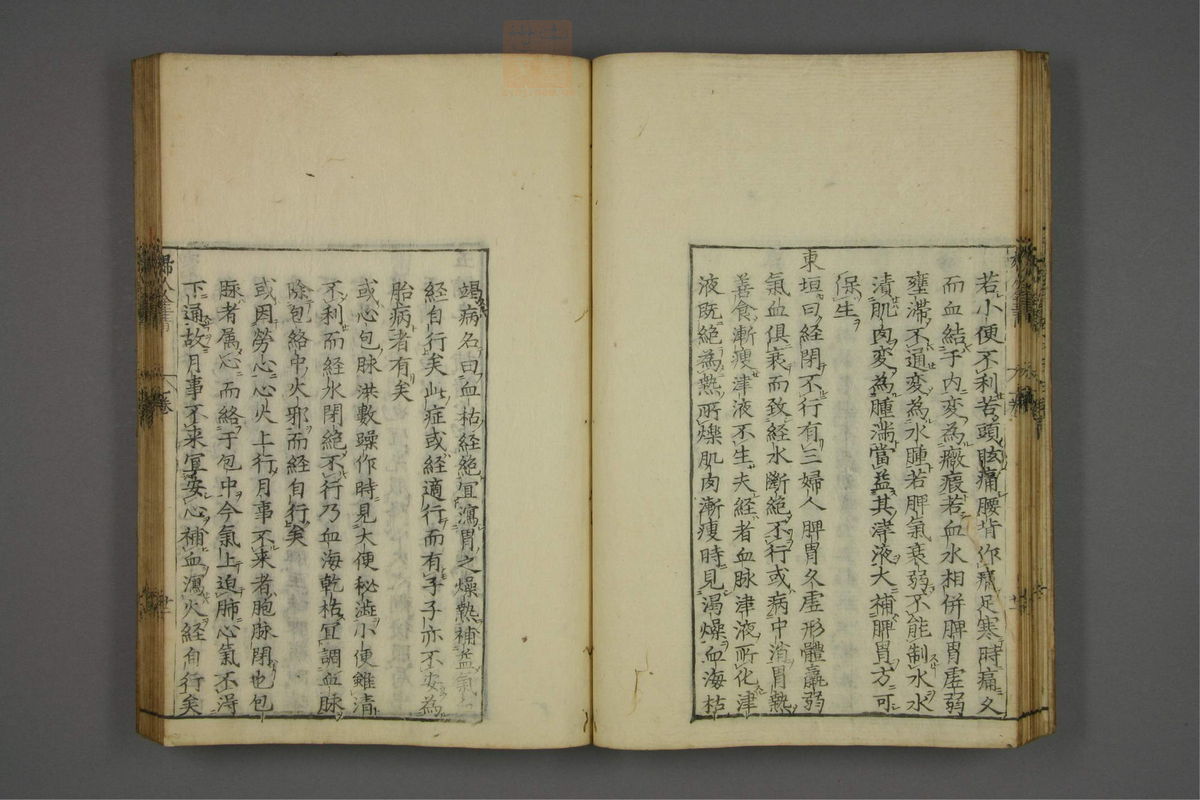 若小便不利苦頭眩痛腰背作痛足寒時痛久
而血結于内変為癥瘕若血水相併脾胃虚弱
壅滞不通変為水腫若脾氣衰弱不能制水水
漬肌肉変為腫満當益其津液大補脾胃方可
保生
東垣曰経閉不行有三婦人脾胃久虚形體羸弱
氣血俱衰而致経水断絶不行或病中消胃熱
善食漸瘦津液不生夫経者血脉津液所化津
液既絶為熱所爍肌肉漸瘦時見渇燥血海枯
竭病名曰血枯経絶冝瀉胃之燥熱補益氣血
経自行矣此症或経適行而有子子亦不安為
胎病者有矣
或心包脉洪數躁作時見大便秘澁小便雖清
不利而経水閉絶不行乃血海乾枯冝調血脉
除包絡中火邪而経自行矣
或因勞心心火上行月事不来者胞脉閉也包
脉者属心而絡于包中今氣上迫肺心氣不淂
下通故月事不来冝安心補血瀉火経自行矣